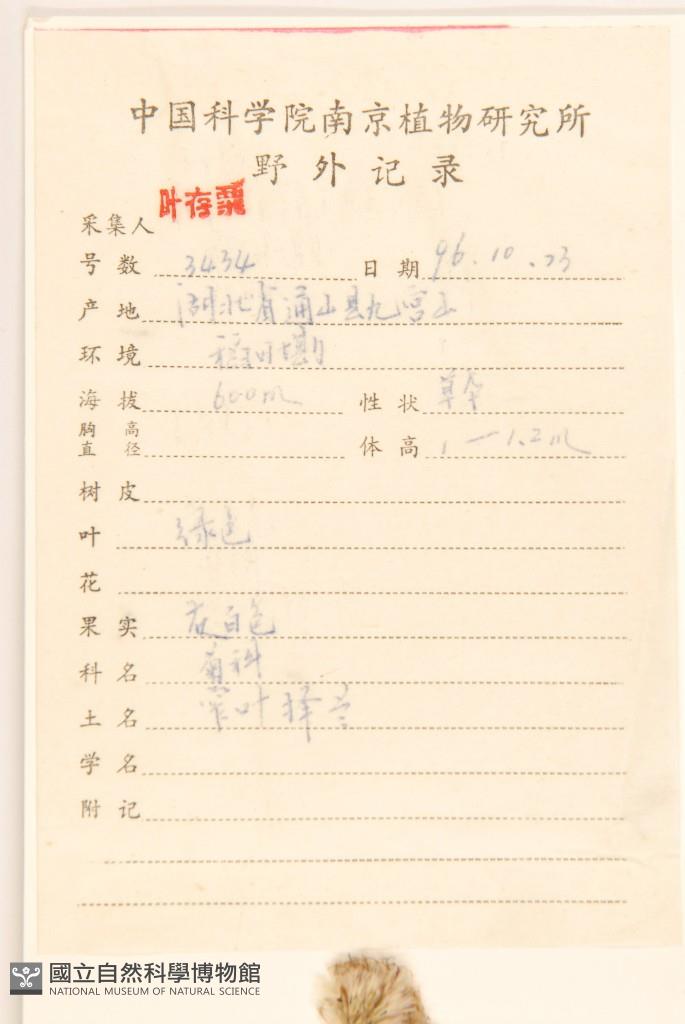 中国科学院南京植物研究所
野外记录
采集人 叶存粟
号数 3434 日期 96.10.23
产地 湖北省通山县九宫山
环境
海拔 600m 性状 草本
胸高直径 体高 1—1.2m
树皮
叶 绿色
花
果实 灰白色
科名 菊科
土名 窄叶择兰
学名
附记
國立自然科學博物館
NATIONAL MUSEUM OF NATURAL SCIENCE